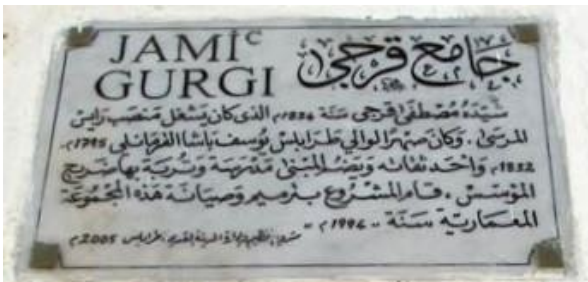 JAMIᶜ
GURGI
جامع قرجي
شيده مصطفى قرجي سنة 1834م الذي كان يشغل منصب رايس
المرسى، وكان صهرا لوالي طرابلس يوسف باشا القرمانلي 1795م.
1832م واحد ثقاته ويضم المبنى مدرسة وتربة بها ضريح
المؤسس، قام المشروع بترميم وصيانة هذه المجموعة
المعمارية سنة "1994م"
المدينة القديمة طرابلس 2005م